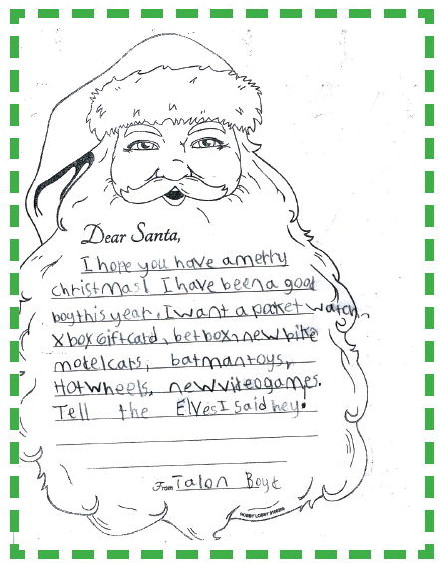 Dear Santa,
I hope you have a merry
christmas! I have been a good
boy this year. I want a pocket watch,
x box Giftcard, betbox, new bike
motelcars, batman toys,
Hot wheels, new viteogames.
Tell the Elves I said hey!
From Talon Boyt
HOBBY LOBBY